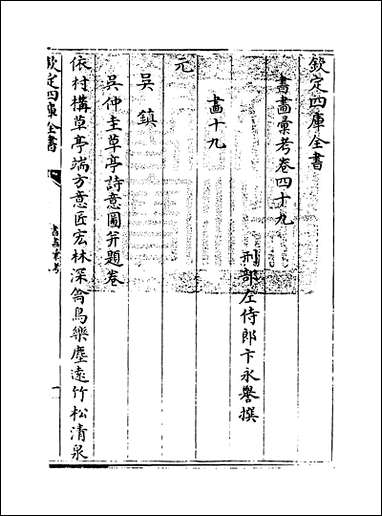 欽定四庫全書
書畫彙考卷四十九
刑部左侍郎卞永譽撰
畫十九
元
吳鎮
吳仲圭草亭詩意圖并題卷
依村構草亭端方意匠宏林深禽鳥樂塵遠竹松清泉
欽定四庫全書
書畫彙考
一